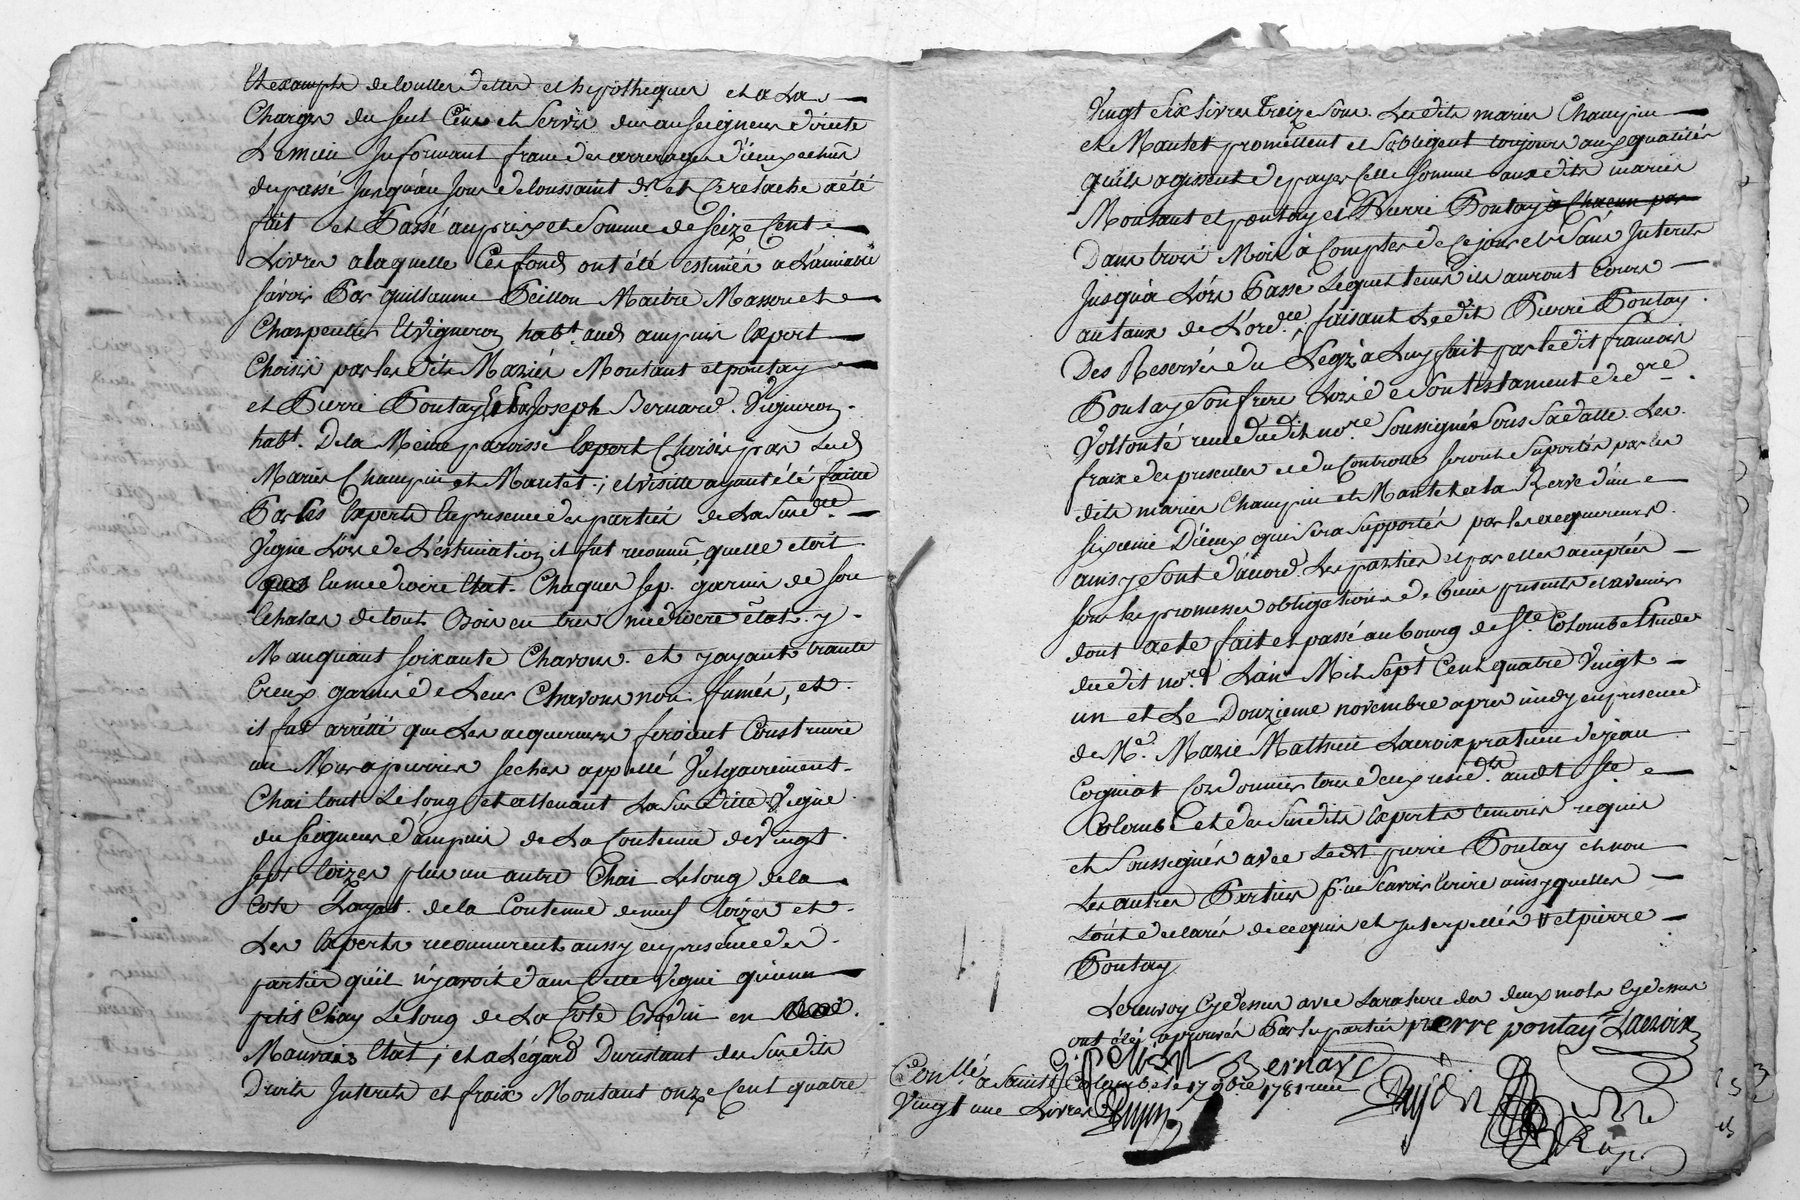 Et exempte de touttes dettes et hypotheques et a la
Charge du seul Cens et servis dus au seigneur directe
franc des arrerages d'iceux
du passé jusqu'au jour de toussaint dr et Ce retache a été
fait et Passé au prix et Somme de Seize Cent
Livres a laquelle Ces fonds ont été estimés a L'amiable
savoir Par guillaume Peillon Maitre Masson et
Charpentier et vigneron habt. aud ampuis Expert
Choisis par les dits Mariés Montant et pontay
et Pierre Pontay et Par Joseph Bernard Vigneron
habt. De la Même paroisse Expert Choisis par Led
Mariés Champin et Mantet ; et visitte ayant été faitte
Par les Experts En presence des parties de La Susdte
Vigne Lors de L'estimation il fut reconnu quelle etoit
En mediocre Etat. Chaque sep garnis de son
Echalas de tout Bois en tres mediocre état y
Manquant soixante Chavons et y ayant trante
Creux garnis de Leur Chavons non fumés, et
il fut arrété que Les acquereurs feroient Construire
un Mur a pierres seches appellé Vulgairement
Chai tout Le Long et attenant La Susditte Vigne
du seigneur d'ampuis de La Contenue de Vingt
sept toizes plus un autre Chai Le long de la
Cote de la Contenue de neuf toizes et
Les Experts reconnurent aussy en presence des
parties qu'il n'y avoit dans Cette Vigne qu'un
ptit Chay Le long de La Cote en
Mauvais Etat ; et a Légard Du restant des Susdits
Droits Interets et fraix Montant onze Cent quatre
Vingt Six Livres Treize Sous. Les dits mariés Champin
et Mantet promettent et S'obligent toujours aux qualités
qu'ils agissent de payer Cette Somme aux dits mariés
Montant et pontay et Pierre Pontay à Chacun par
Dans trois Mois à Compter de Ce jour et Sans Interets
Jusqu'a Lors Passé Lequel tems ils auront Cours
au taux de L'ordce, faisant Ledit Pierre Pontay
Des Reserves du Legs à Luy fait par le dit francois
Pontay Son frere Lors de Son testament de dre
Vollonté reçu dudit nore Soussigné Sous Sa datte. Les
fraix des presentes et du Controlle seront Suportés par les
dits mariés Champin et Mantet a la Reserve d'un
sixieme D'iceux qui sera supportés par les acquereurs
ainsy Sont d'acord Les parties et par elles acceptées
sous les promesses obligations de biens presents et avenirs
dont acte fait et passé au bourg de Ste Colombe Etude
dudit nore L'an Mil Sept Cent quatre Vingt
un et Le Douzieme novembre apres midy en presence
de Me. Marie Mathieu Lacroix praticien Jean
Cogniat Cordonnier tous deux residts audt Ste
Colombe et des Susdits Experts temoins requis
et Soussignés avec Ledt pierre Pontay et non
Les autres Parties pr. ne Scavoir Ecrire ainsy quelles
L'ont declarés de ce requis et Interpellés # et pierre
Pontay
Le renvoy Cy dessus avec La rature des deux mots Cy dessus
ont été aprouvés Par les parties pierre pontay Lacroix
G. peillon Bernard
Conllé a Sainte Colombe le 17 9bre 1781 reçu
Vingt une Livres